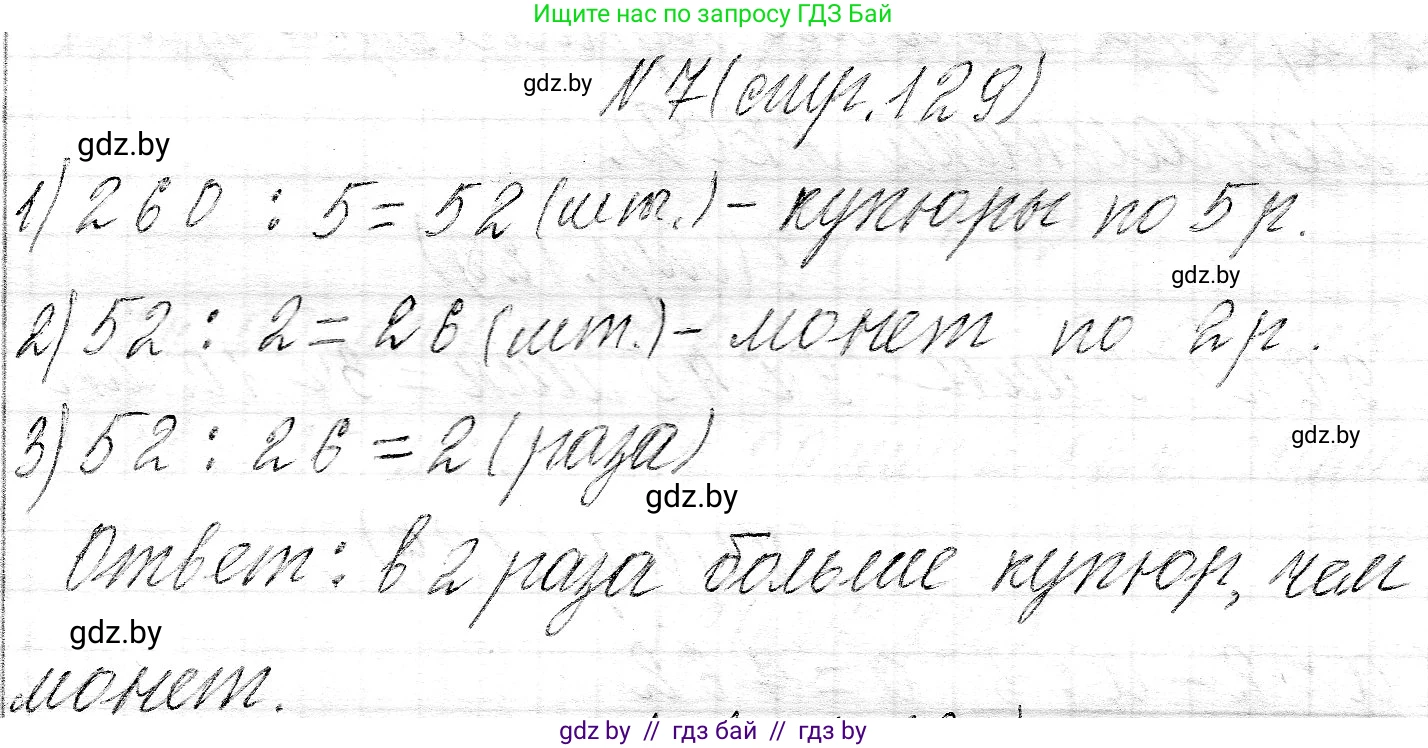 Ищите нас по запросу ГДЗ Бай
gdz.by
№7(стр.129)
gdz.by
1) 260 : 5 = 52 (шт.) - купюры по 5 р.
gdz.by
2) 52 : 2 = 26 (шт.) - монет по 2 р.
3) 52 : 26 = 2 (раза)
gdz.by
gdz.by
Ответ: в 2 раза больше купюр, чем
gdz.by
монет.
gdz.by // гдз бай // гдз by